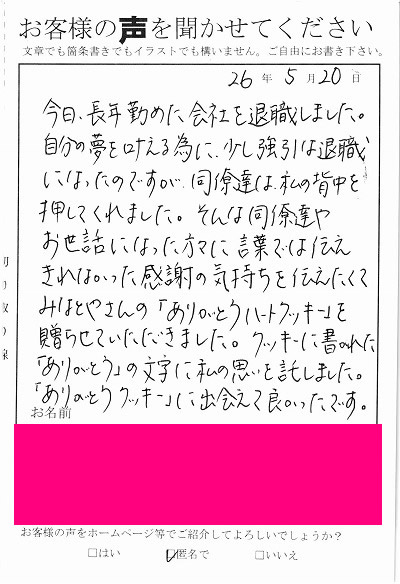 お客様の声を聞かせてください
文章でも箇条書きでもイラストでも構いません。ご自由にお書き下さい。
26年 5月20日
今日、長年勤めた会社を退職しました。
自分の夢を叶える為に、少し強引な退職
になったのですが、同僚達は、私の背中を
押してくれました。そんな同僚達や
お世話になった方々に言葉では伝え
きれなかった感謝の気持ちを伝えたくて
みなとやさんの「ありがとうハートクッキー」を
贈らせていただきました。クッキーに書かれた
「ありがとう」の文字に私の思いを託しました。
「ありがとうクッキー」に出会えて良かったです。
お名前
お客様の声をホームページ等でご紹介してよろしいでしょうか？
□はい ☑匿名で □いいえ
切り取り線